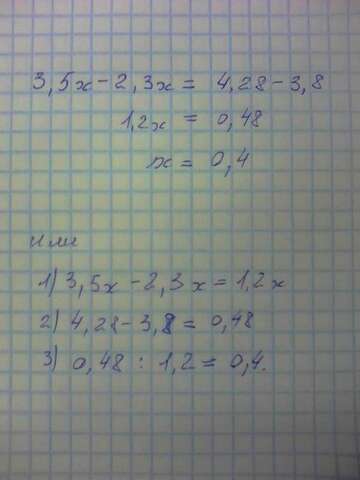 3,5x - 2,3x = 4,28 - 3,8
1,2x = 0,48
x = 0,4
или
1) 3,5x - 2,3x = 1,2x
2) 4,28 - 3,8 = 0,48
3) 0,48 : 1,2 = 0,4.